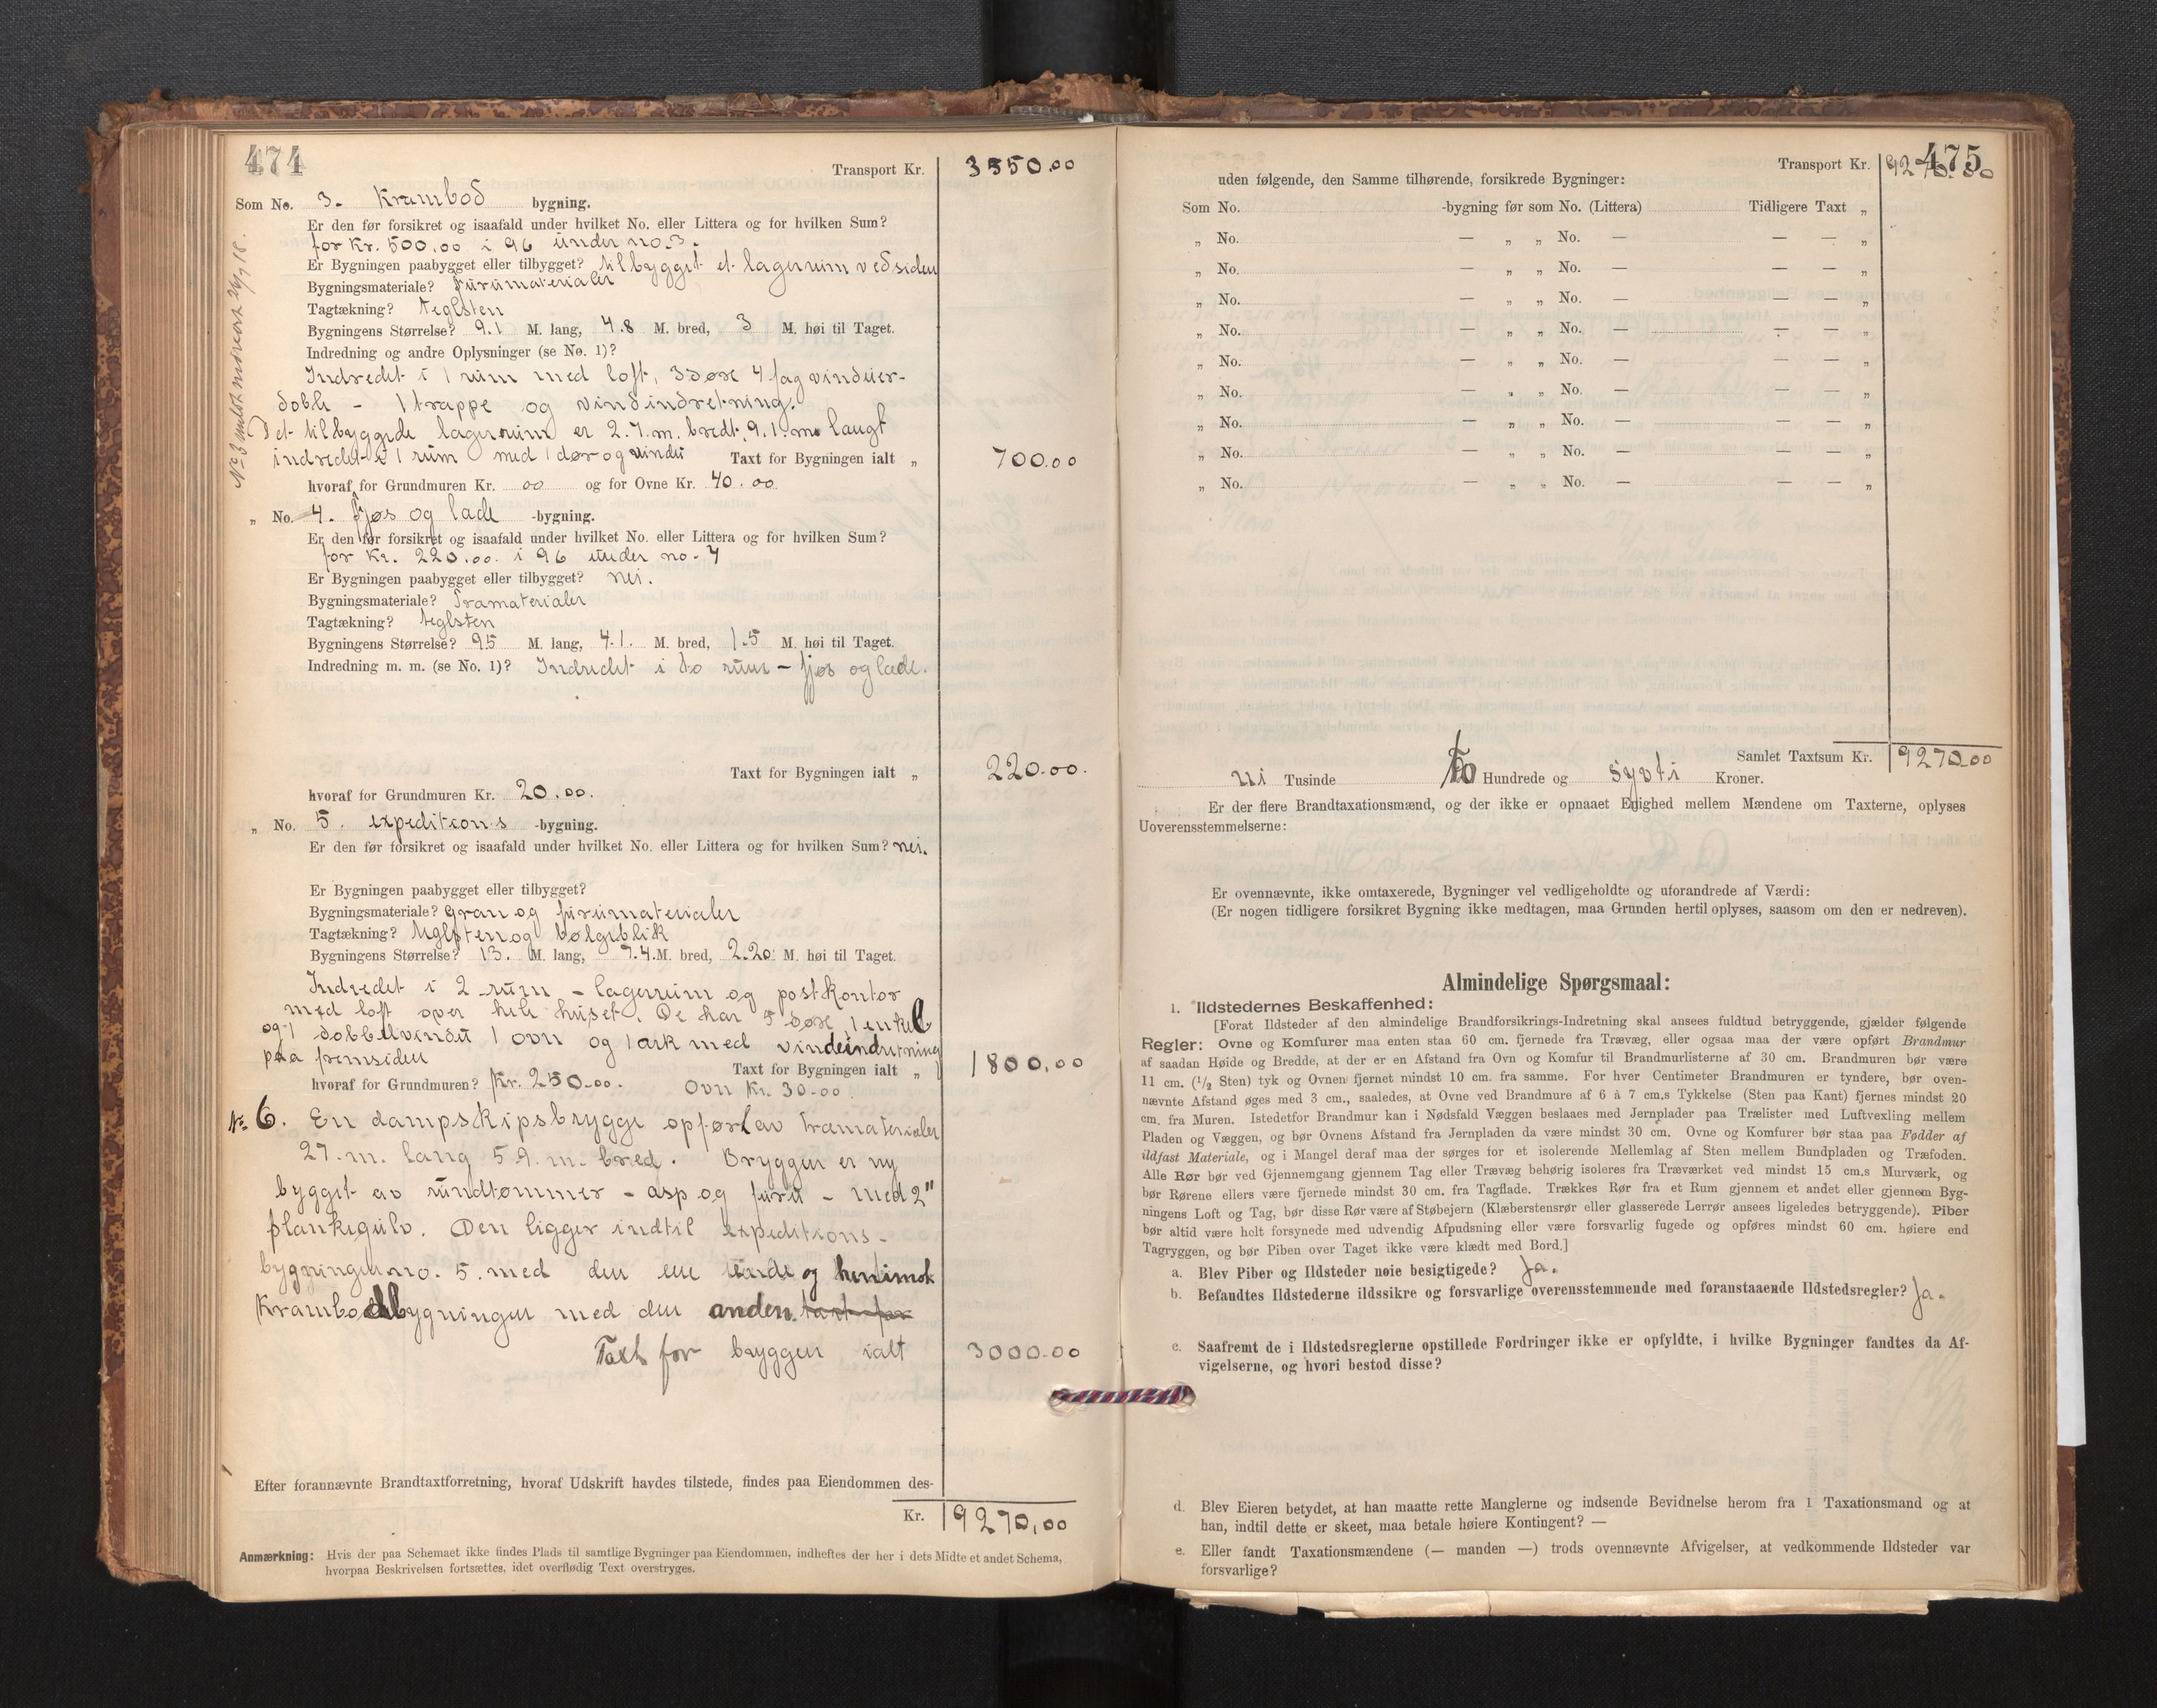 474
Transport Kr. 3550.00
Som No. 3. Krambod bygning.
Er den før forsikret og isaafald under hvilket No. eller Littera og for hvilken Sum?
for Kr. 500.00 i 96 under no. 3.
Er Bygningen paabygget eller tilbygget? tilbygget et lagerrum vedsiden
Bygningsmateriale? Furumaterialer
Tagtækning? teglsten
Bygningens Størrelse? 9.1 M. lang, 4.8 M. bred, 3 M. høi til Taget.
Indredning og andre Oplysninger (se No. 1)?
Indredet i 1 rum med loft, 3 døre 4 fag vinduer-
doble - 1 trappe og vindindretning.
Det tilbyggede lagerrum er 2.7.m. bredt, 9.1 m. langt
indredet i 1 rum med 1 dør og vindu Taxt for Bygningen ialt „ 700.00
hvoraf for Grundmuren Kr. 00 og for Ovne Kr. 40.00
„ No. 4. Fjøs og lade -bygning.
Er den før forsikret og isaafald under hvilket No. eller Littera og for hvilken Sum?
for Kr. 220.00. i 96 under no. 4
Er Bygningen paabygget eller tilbygget? nei.
Bygningsmateriale? Tramaterialer
Tagtækning? teglsten
Bygningens Størrelse? 9.5 M. lang, 4.1. M. bred, 1.5 M. høi til Taget.
Indredning m. m. (se No. 1)? Indredet i to rum - fjøs og lade.
Taxt for Bygningen ialt „ 220.00.
hvoraf for Grundmuren Kr. 20.00.
„ No. 5. expeditions -bygning.
Er den før forsikret og isaafald under hvilket No. eller Littera og for hvilken Sum? nei.
Er Bygningen paabygget eller tilbygget?
Bygningsmateriale? gran og furumaterialer
Tagtækning? teglsten og bølgeblik
Bygningens Størrelse? 13. M. lang, 7.4. M. bred, 2.20 M. høi til Taget.
Indredet i 2 rum - lagerrum og postkontor
med loft over hele huset. De har 5 døre, 1 enkel
og 1 dobbelvindu 1 ovn og 1 ark med vindeindretning
paa fremsiden Taxt for Bygningen ialt „ 1800.00
hvoraf for Grundmuren? Kr. 250.00. Ovn Kr. 30.00
No. 6. En dampskipsbrygge opført av tramaterialer
27.m. lang 5.9.m. bred. Bryggen er ny
bygget av rundtømmer - asp og furu - med 2"
plankegulv. Den ligger indtil expeditions-
bygningen no. 5. med den ene ende og henimot
Krambodbygningen med den anden. taxt for
Taxt for bryggen ialt 3000.00
Efter forannævnte Brandtaxtforretning, hvoraf Udskrift havdes tilstede, findes paa Eiendommen des-
Kr. 9270,00
Anmærkning: Hvis der paa Schemaet ikke findes Plads til samtlige Bygninger paa Eiendommen, indheftes der her i dets Midte et andet Schema,
hvorpaa Beskrivelsen fortsættes, idet overflødig Text overstryges.
475
Transport Kr. 9270.00
uden følgende, den Samme tilhørende, forsikrede Bygninger:
Som No. -bygning før som No. (Littera) Tidligere Taxt „
„ No. — „ „ No. — — — „
„ No. — „ „ No. — — — „
„ No. — „ „ No. — — — „
„ No. — „ „ No. — — — „
„ No. — „ „ No. — — — „
„ No. — „ „ No. — — — „
„ No. — „ „ No. — — — „
„ No. — „ „ No. — — — „
„ No. — „ „ No. — — — „
Samlet Taxtsum Kr. 9270.00
ni Tusinde to Hundrede og sytti Kroner.
Er der flere Brandtaxationsmænd, og der ikke er opnaaet Enighed mellem Mændene om Taxterne, oplyses
Uoverensstemmelserne:
Er ovennævnte, ikke omtaxerede, Bygninger vel vedligeholdte og uforandrede af Værdi:
(Er nogen tidligere forsikret Bygning ikke medtagen, maa Grunden hertil oplyses, saasom om den er nedreven).
Almindelige Spørgsmaal:
1. Ildstedernes Beskaffenhed:
[Forat Ildsteder af den almindelige Brandforsikrings-Indretning skal ansees fuldtud betryggende, gjælder følgende
Regler: Ovne og Komfurer maa enten staa 60 cm. fjernede fra Trævæg, eller ogsaa maa der være opført Brandmur
af saadan Høide og Bredde, at der er en Afstand fra Ovn og Komfur til Brandmurlisterne af 30 cm. Brandmuren bør være
11 cm. (1/2 Sten) tyk og Ovnen fjernet mindst 10 cm. fra samme. For hver Centimeter Brandmuren er tyndere, bør oven-
nævnte Afstand øges med 3 cm., saaledes, at Ovne ved Brandmure af 6 à 7 cm.s Tykkelse (Sten paa Kant) fjernes mindst 20
cm. fra Muren. Istedetfor Brandmur kan i Nødsfald Væggen beslaaes med Jernplader paa Trælister med Luftvexling mellem
Pladen og Væggen, og bør Ovnens Afstand fra Jernpladen da være mindst 30 cm. Ovne og Komfurer bør staa paa Fødder af
ildfast Materiale, og i Mangel deraf maa der sørges for et isolerende Mellemlag af Sten mellem Bundpladen og Træfoden.
Alle Rør bør ved Gjennemgang gjennem Tag eller Trævæg behørig isoleres fra Træværket ved mindst 15 cm.s Murværk, og
bør Rørene ellers være fjernede mindst 30 cm. fra Tagflade. Trækkes Rør fra et Rum gjennem et andet eller gjennem Byg-
ningens Loft og Tag, bør disse Rør være af Støbejern (Klæberstensrør eller glasserede Lerrør ansees ligeledes betryggende). Piber
bør altid være helt forsynede med udvendig Afpudsning eller være forsvarlig fugede og opføres mindst 60 cm. høiere end
Tagryggen, og bør Piben over Taget ikke være klædt med Bord.]
a. Blev Piber og Ildsteder nøie besigtigede? Ja.
b. Befandtes Ildstederne ildssikre og forsvarlige overensstemmende med foranstaaende Ildstedsregler? Ja.
c. Saafremt de i Ildstedsreglerne opstillede Fordringer ikke er opfyldte, i hvilke Bygninger fandtes da Af-
vigelserne, og hvori bestod disse?
d. Blev Eieren betydet, at han maatte rette Manglerne og indsende Bevidnelse herom fra 1 Taxationsmand og at
han, indtil dette er skeet, maa betale høiere Kontingent? —
e. Eller fandt Taxationsmændene (— manden —) trods ovennævnte Afvigelser, at vedkommende Ildsteder var
forsvarlige?